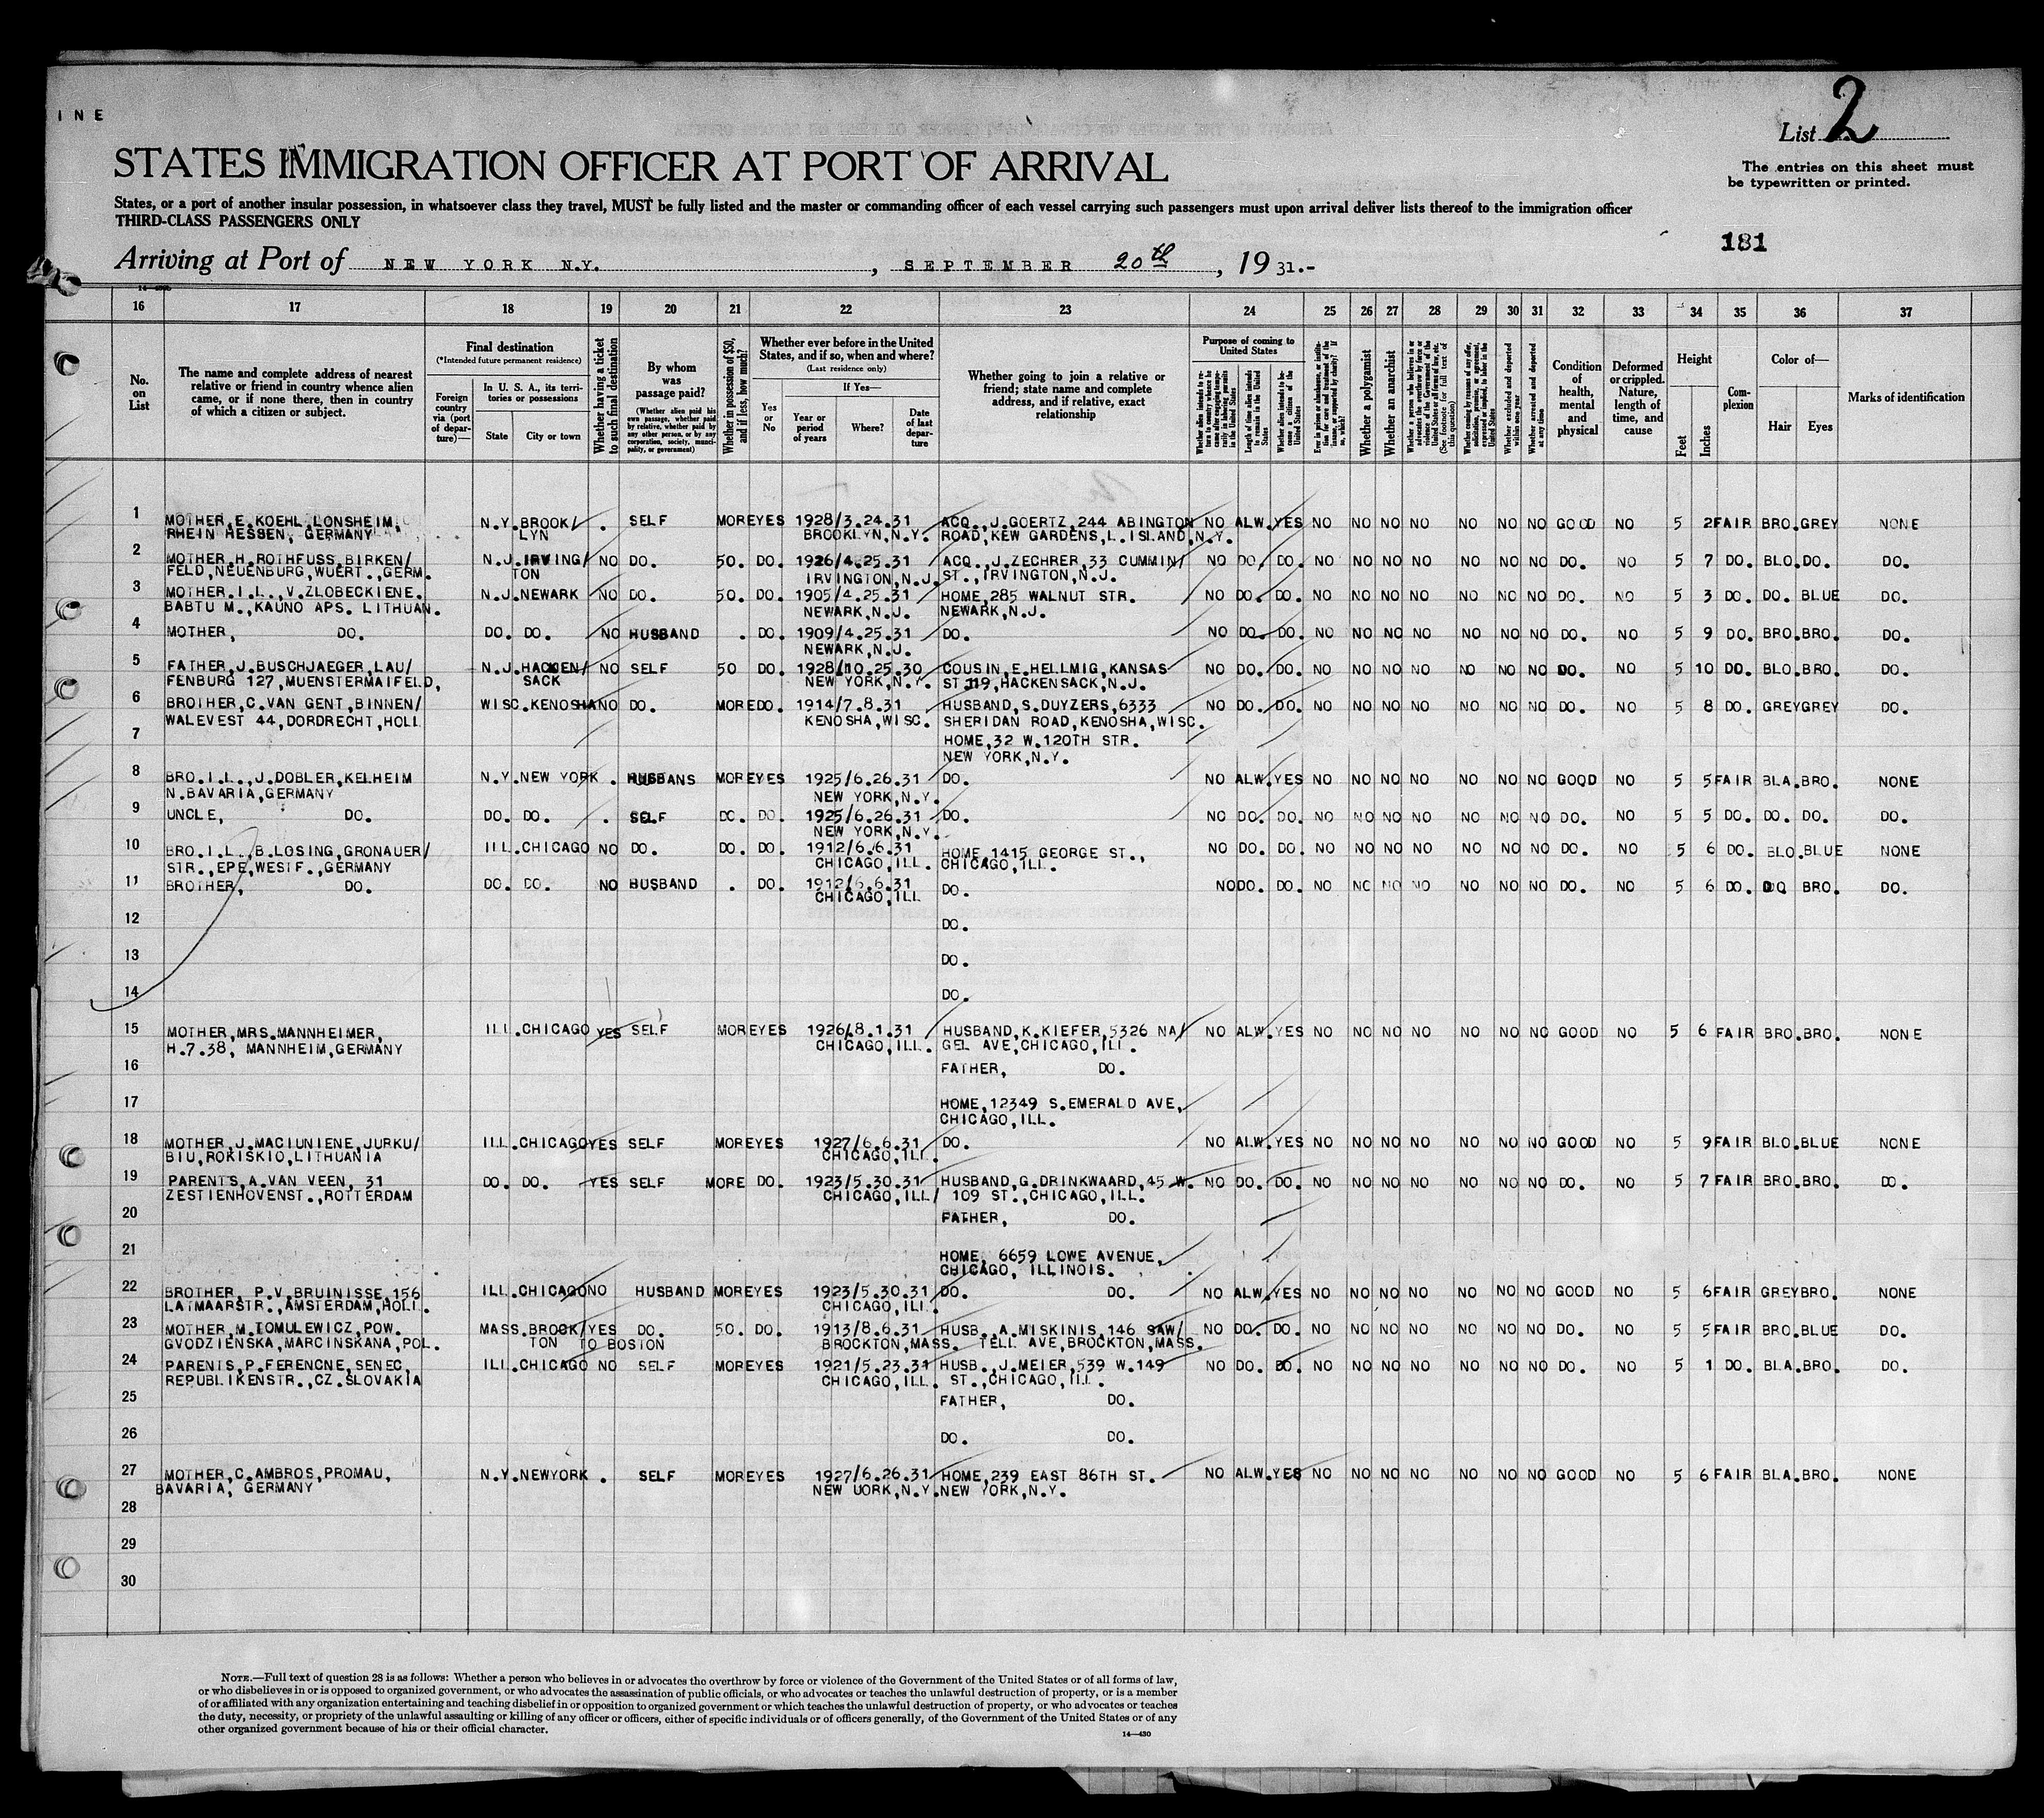 INE
List 2
STATES IMMIGRATION OFFICER AT PORT OF ARRIVAL
The entries on this sheet must
be typewritten or printed.
States, or a port of another insular possession, in whatsoever class they travel, MUST be fully listed and the master or commanding officer of each vessel carrying such passengers must upon arrival deliver lists thereof to the immigration officer
THIRD-CLASS PASSENGERS ONLY
181
Arriving at Port of NEW YORK N.Y. , SEPTEMBER 20th , 19 31.-
16 17 18 19 20 21 22 23 24 25 26 27 28 29 30 31 32 33 34 35 36 37
No. on List
The name and complete address of nearest relative or friend in country whence alien came, or if none there, then in country of which a citizen or subject.
Final destination
(*Intended future permanent residence)
Foreign country via (port of departure)—
In U. S. A., its territories or possessions
State
City or town
Whether having a ticket to such final destination
By whom was passage paid?
(Whether alien paid his own passage, whether paid by relative, whether paid by any other person, or by any corporation, society, municipality, or government)
Whether in possession of $50, and if less, how much?
Whether ever before in the United States, and if so, when and where?
(Last residence only)
If Yes—
Yes or No
Year or period of years
Where?
Date of last departure
Whether going to join a relative or friend; state name and complete address, and if relative, exact relationship
Purpose of coming to United States
Length of time alien intends to remain in the United States
Whether alien intends to become a citizen of the United States
Whether a polygamist
Whether an anarchist
Whether excluded and deported within one year
Whether arrested and deported at any time
Condition of health, mental and physical
Deformed or crippled. Nature, length of time, and cause
Height
Feet
Inches
Complexion
Color of—
Hair
Eyes
Marks of identification
1 MOTHER,E.KOEHL,LONSHEIM, N.Y.BROOK/ . SELF MORE YES 1928/3.24.31 ACQ.,J.GOERTZ,244 ABINGTON NO ALW.YES NO NO NO NO NO NO NO GOOD NO 5 2 FAIR BRO.GREY NONE
RHEIN HESSEN, GERMANY LYN BROOKLYN,N.Y. ROAD,KEW GARDENS,L.ISLAND,N.Y.
2 MOTHER,H.ROTHFUSS,BIRKEN/ N.J.IRVING/ NO DO. 50. DO. 1926/4.25.31 ACQ.,J.ZECHRER,33 CUMMIN/ NO DO. DO. NO NO NO NO NO NO NO DO. NO 5 7 DO. BLO.DO. DO.
FELD,NEUENBURG,WUERT.,GERM. TON IRVINGTON,N.J. ST.,IRVINGTON,N.J.
3 MOTHER.I.L.,V.ZLOBECKIENE. N.J.NEWARK NO DO. 50. DO. 1905/4.25.31 HOME,285 WALNUT STR. NO DO. DO. NO NO NO NO NO NO NO DO. NO 5 3 DO. DO. BLUE DO.
BABTU M.,KAUNO APS. LITHUAN. NEWARK,N.J. NEWARK,N.J.
4 MOTHER, DO. DO. DO. NO HUSBAND . DO. 1909/4.25.31 DO. NO DO. DO. NO NO NO NO NO NO NO DO. NO 5 9 DO. BRO.BRO. DO.
NEWARK,N.J.
5 FATHER,J.BUSCHJAEGER,LAU/ N.J.HACKEN/ NO SELF 50 DO. 1928/10.25.30 COUSIN,E.HELLMIG,KANSAS NO DO. DO. NO NO NO NO NO NO NO DO. NO 5 10 DO. BLO.BRO. DO.
FENBURG 127,MUENSTERMAIFELD, SACK NEW YORK,N.Y. ST.119,HACKENSACK,N.J.
6 BROTHER,C.VAN GENT,BINNEN/ WISC.KENOSHA NO DO. MORE DO. 1914/7.8.31 HUSBAND,S.DUYZERS,6333 NO DO. DO. NO NO NO NO NO NO NO DO. NO 5 8 DO. GREYGREY DO.
WALEVEST 44,DORDRECHT,HOLL KENOSHA,WISC. SHERIDAN ROAD,KENOSHA,WISC.
7 HOME,32 W.120TH STR.
NEW YORK,N.Y.
8 BRO.I.L.,J.DOBLER,KELHEIM N.Y.NEW YORK . HUSBANS MORE YES 1925/6.26.31 DO. NO ALW.YES NO NO NO NO NO NO NO GOOD NO 5 5 FAIR BLA.BRO. NONE
N.BAVARIA,GERMANY NEW YORK,N.Y.
9 UNCLE, DO. DO. DO. . SELF DO. DO. 1925/6.26.31 DO. NO DO. DO. NO NO NO NO NO NO NO DO. NO 5 5 DO. DO. DO. DO.
NEW YORK,N.Y.
10 BRO.I.L.,B.LOSING,GRONAUER/ ILL.CHICAGO NO DO. DO. DO. 1912/6.6.31 HOME,1415 GEORGE ST., NO DO. DO. NO NO NO NO NO NO NO DO. NO 5 6 DO. BLO.BLUE NONE
STR.,EPE,WESTF.,GERMANY CHICAGO,ILL. CHICAGO,ILL.
11 BROTHER, DO. DO. DO. NO HUSBAND . DO. 1912/6.6.31 DO. NO DO. DO. NO NO NO NO NO NO NO DO. NO 5 6 DO. DO BRO. DO.
CHICAGO,ILL
12 DO.
13 DO.
14 DO.
15 MOTHER,MRS.MANNHEIMER, ILL.CHICAGO YES SELF MORE YES 1926/8.1.31 HUSBAND,K.KIEFER,5326 NA/ NO ALW.YES NO NO NO NO NO NO NO GOOD NO 5 6 FAIR BRO.BRO. NONE
H.7.38, MANNHEIM,GERMANY CHICAGO,ILL. GEL AVE,CHICAGO,ILL.
16 FATHER, DO.
17 HOME,12349 S.EMERALD AVE,
CHICAGO,ILL.
18 MOTHER,J.MACIUNIENE,JURKU/ ILL.CHICAGO YES SELF MORE YES 1927/6.6.31 DO. NO ALW.YES NO NO NO NO NO NO NO GOOD NO 5 9 FAIR BLO.BLUE NONE
BIU,ROKISKIO,LITHUANIA CHICAGO,ILL.
19 PARENTS,A.VAN VEEN, 31 DO. DO. YES SELF MORE DO. 1923/5.30.31 HUSBAND,G.DRINKWAARD,45 W. NO DO. DO. NO NO NO NO NO NO NO DO. NO 5 7 FAIR BRO.BRO. DO.
ZESTIENHOVENST.,ROTTERDAM CHICAGO,ILL/ 109 ST.,CHICAGO,ILL.
20 FATHER, DO.
21 HOME, 6659 LOWE AVENUE,
CHICAGO, ILLINOIS.
22 BROTHER, P.V.BRUINISSE,156 ILL.CHICAGO NO HUSBAND MORE YES 1923/5.30.31 DO. DO. NO ALW.YES NO NO NO NO NO NO NO GOOD NO 5 6 FAIR GREYBRO. NONE
LATMAARSTR.,AMSTERDAM,HOLL. CHICAGO,ILL.
23 MOTHER,M.TOMULEWICZ,POW. MASS.BROCK/ YES DO. 50. DO. 1913/8.6.31 HUSB.,A.MISKINIS,146 SAW/ NO DO. DO. NO NO NO NO NO NO NO DO. NO 5 5 FAIR BRO.BLUE DO.
GVODZIENSKA,MARCINSKANA,POL. TON TO BOSTON BROCKTON,MASS. TELL AVE,BROCKTON,MASS.
24 PARENTS,P.FERENCNE,SENEC, ILL.CHICAGO NO SELF MORE YES 1921/5.23.31 HUSB.,J.MEIER,539 W.149 NO DO. DO. NO NO NO NO NO NO NO DO. NO 5 1 DO. BLA.BRO. DO.
REPUBLIKENSTR.,CZ.SLOVAKIA CHICAGO,ILL. ST.,CHICAGO,ILL.
25 FATHER, DO.
26 DO. DO.
27 MOTHER,C.AMBROS,PROMAU, N.Y.NEWYORK . SELF MORE YES 1927/6.26.31 HOME,239 EAST 86TH ST. NO ALW.YES NO NO NO NO NO NO NO GOOD NO 5 6 FAIR BLA.BRO. NONE
BAVARIA, GERMANY NEW UORK,N.Y. NEW YORK,N.Y.
28
29
30
NOTE.—Full text of question 28 is as follows: Whether a person who believes in or advocates the overthrow by force or violence of the Government of the United States or of all forms of law,
or who disbelieves in or is opposed to organized government, or who advocates the assassination of public officials, or who advocates or teaches the unlawful destruction of property, or is a member
of or affiliated with any organization entertaining and teaching disbelief in or opposition to organized government or which teaches the unlawful destruction of property, or who advocates or teaches
the duty, necessity, or propriety of the unlawful assaulting or killing of any officer or officers, either of specific individuals or of officers generally, of the Government of the United States or of any
other organized government because of his or their official character.
14—430